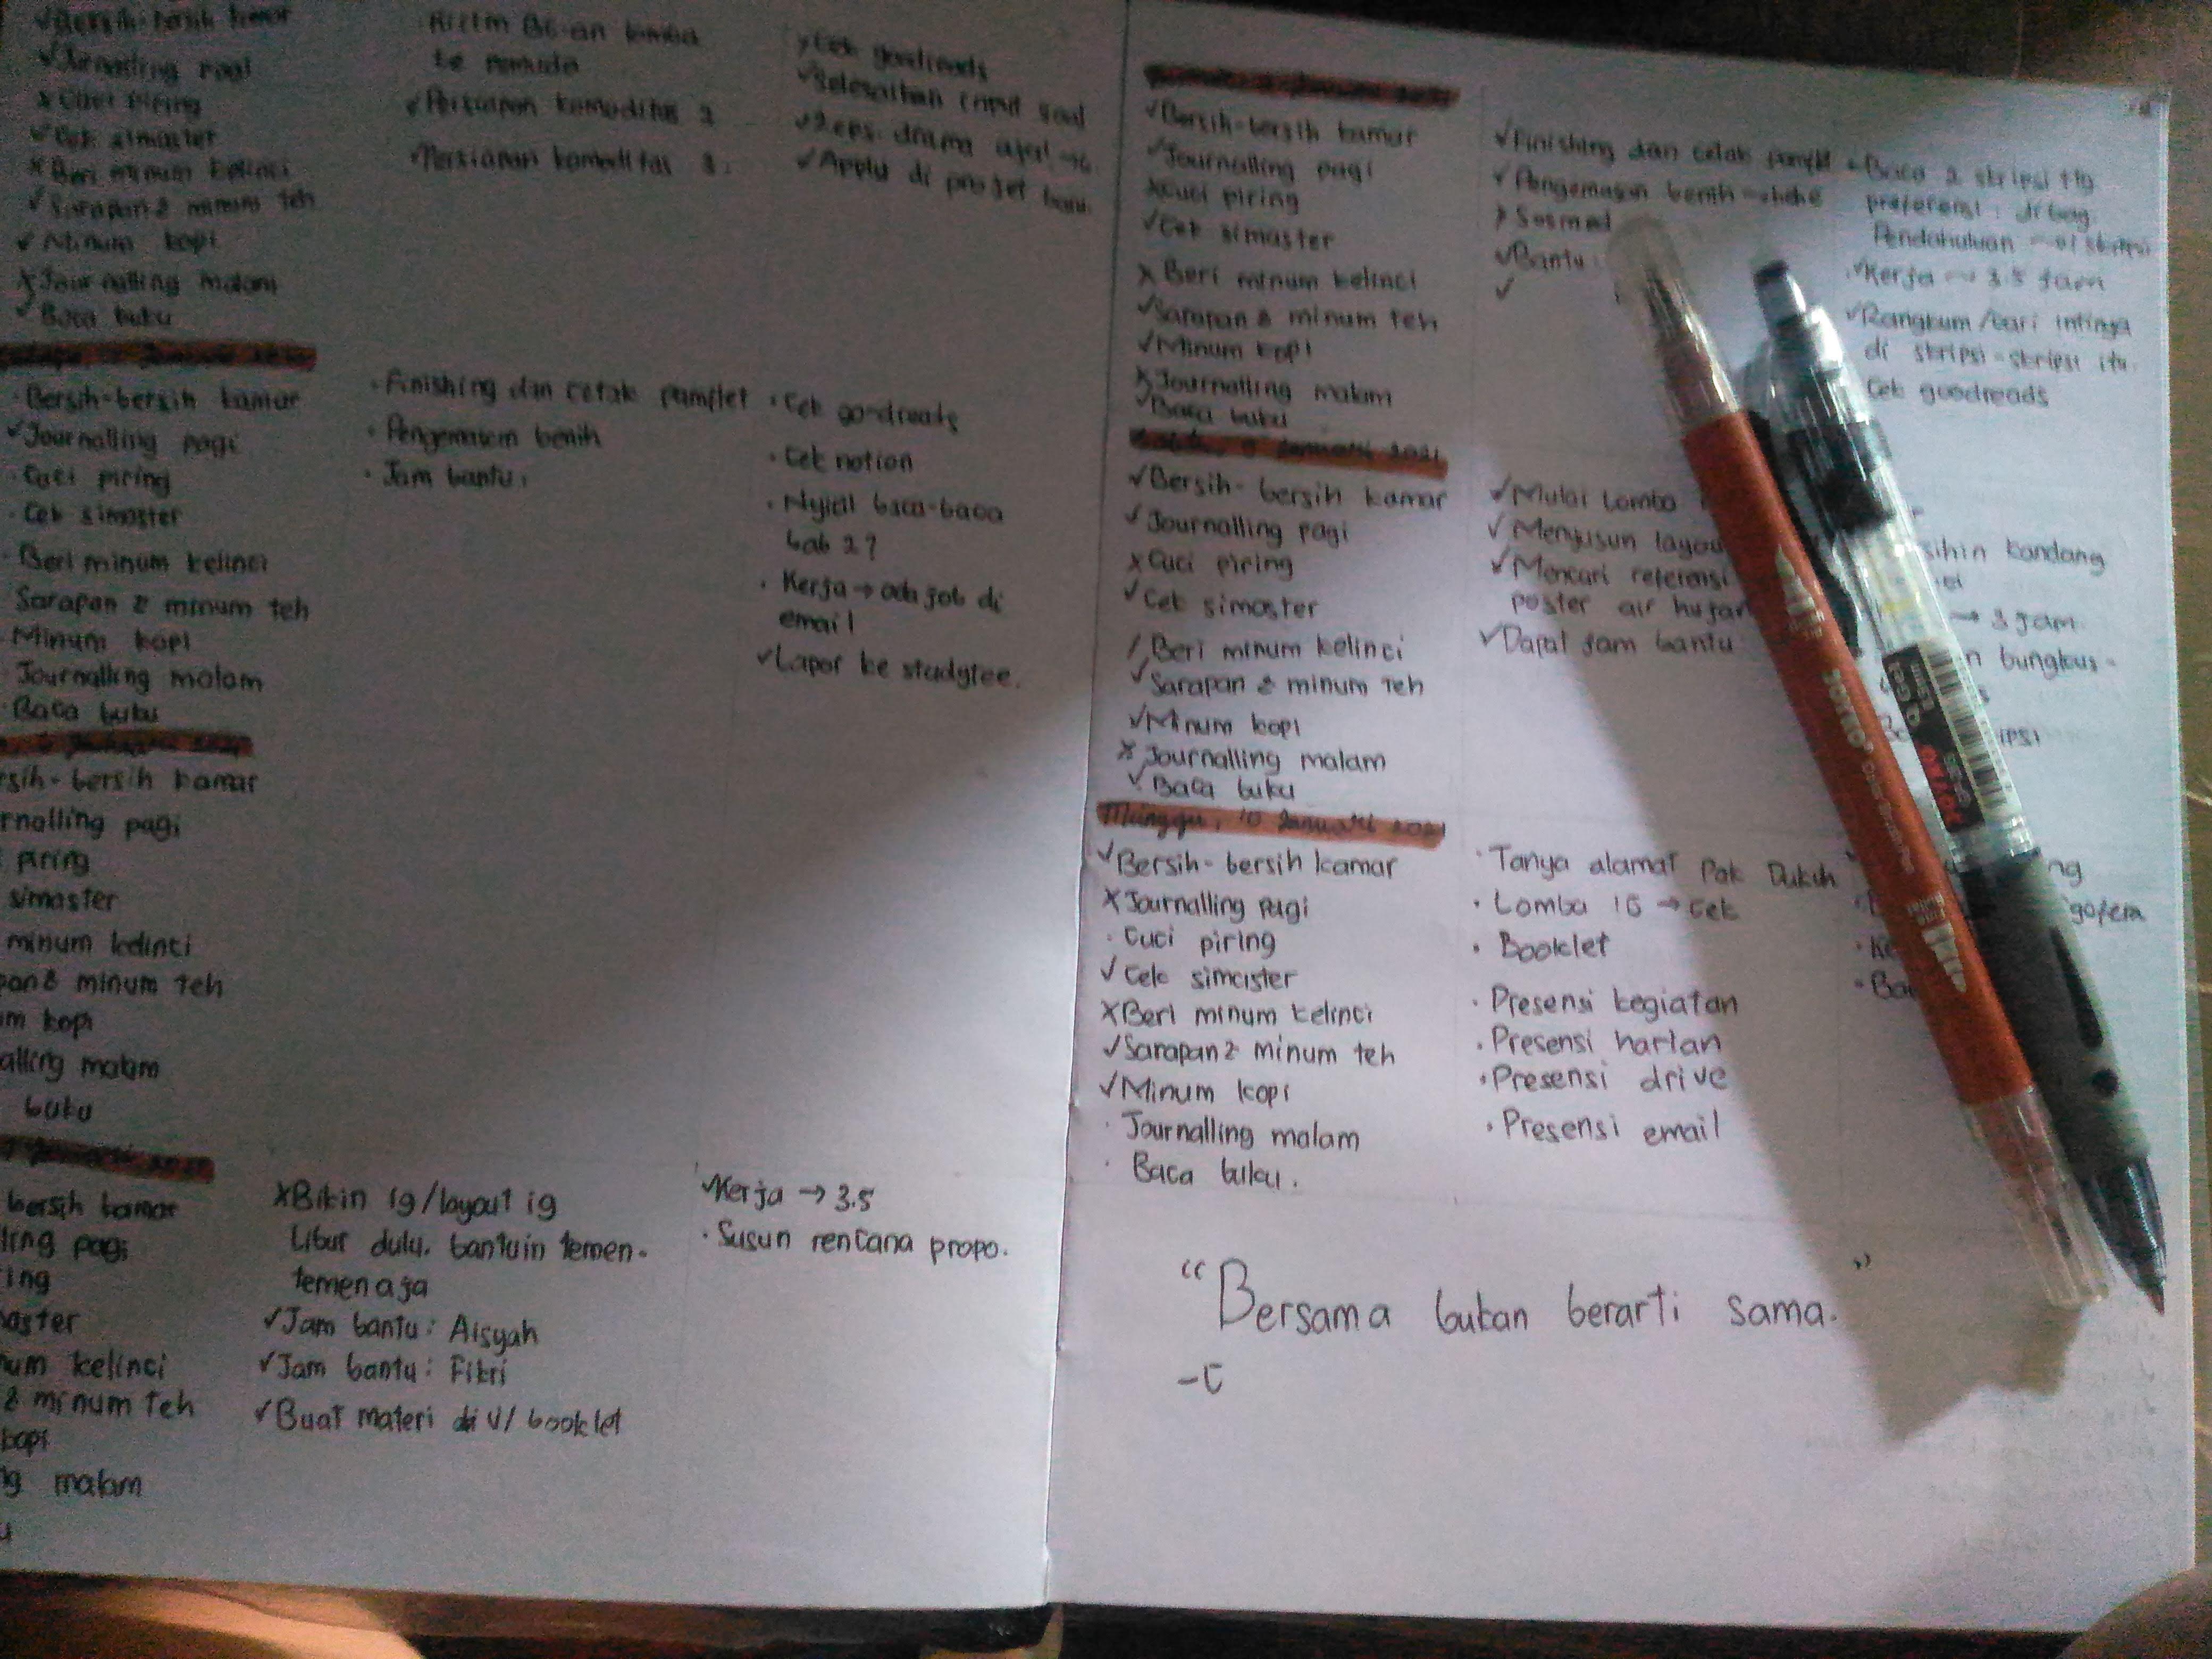 ✓Bersih-bersih kamar
✓Journalling pagi
xCuci piring
✓Cek simaster
xBeri minum kelinci
✓Sarapan & minum teh
✓Minum kopi
xJournalling malam
✓Baca buku
te pemuda
✓Persiapan komoditas 2
Persiapan komoditas 3:
✓Cek goodreads
✓Selesaikan input soal
✓Apply di projet baru
Januari
· Bersih-bersih kamar
✓Journalling pagi
· Cuci piring
· Cek simaster
· Beri minum kelinci
Sarapan & minum teh
Minum kopi
Journalling malam
Baca buku
· Finishing dan cetak pamflet
· Pengemasan benih
· Jam bantu:
· Cek goodreads
· Cek notion
· Nyicil baca-baca
bab 2?
· Kerja → ada job di
email
✓Lapor ke studytee.
rsih-bersih kamar
rnalling pagi
piring
simaster
minum kelinci
pan & minum teh
um kopi
alling malam
buku
Januari 2021
bersih kamar
ling pagi
ing
aster
num kelinci
& minum teh
kopi
ng malam
xBikin ig/layout ig
Libur dulu. bantuin temen-
temen aja
✓Jam bantu: Aisyah
✓Jam bantu: Fikri
✓Buat materi booklet
✓Kerja → 3.5
· Susun rencana propo.
Januari 2021
✓Bersih-bersih kamar
✓Journalling pagi
xCuci piring
✓Cek simaster
x Beri minum kelinci
✓Sarapan & minum teh
✓Minum kopi
xJournalling malam
✓Baca buku
✓Finishing dan cetak pamflet
✓Pengemasan benih
Sosmed
✓Bantu
✓
· Baca 2 skripsi ttg
preferensi: di bag
Pendahuluan
✓Kerja → 3.5 jam
✓Rangkum/cari intinya
di skripsi-skripsi itu.
Cek goodreads
Januari 2021
✓Bersih-bersih kamar
✓Journalling pagi
xCuci piring
✓Cek simaster
/ Beri minum kelinci
✓Sarapan & minum teh
✓Minum kopi
x Journalling malam
✓Baca buku
✓Mulai lomba
✓Menyusun layou
✓Mencari referensi
poster air hujan
✓Dapat jam bantu
sihin kandang
→ 3 jam
n bungkus-
ipsi
Minggu, 10 Januari 2021
✓Bersih-bersih kamar
xJournalling pagi
· Cuci piring
✓Cek simaster
xBeri minum kelinci
✓Sarapan & minum teh
✓Minum kopi
· Journalling malam
· Baca buku.
· Tanya alamat Pak Dukuh
· Lomba IG → cek
· Booklet
· Presensi kegiatan
· Presensi harian
· Presensi drive
· Presensi email
ng
· Ke
· Ba
"Bersama bukan berarti sama."
-C
JOYKO